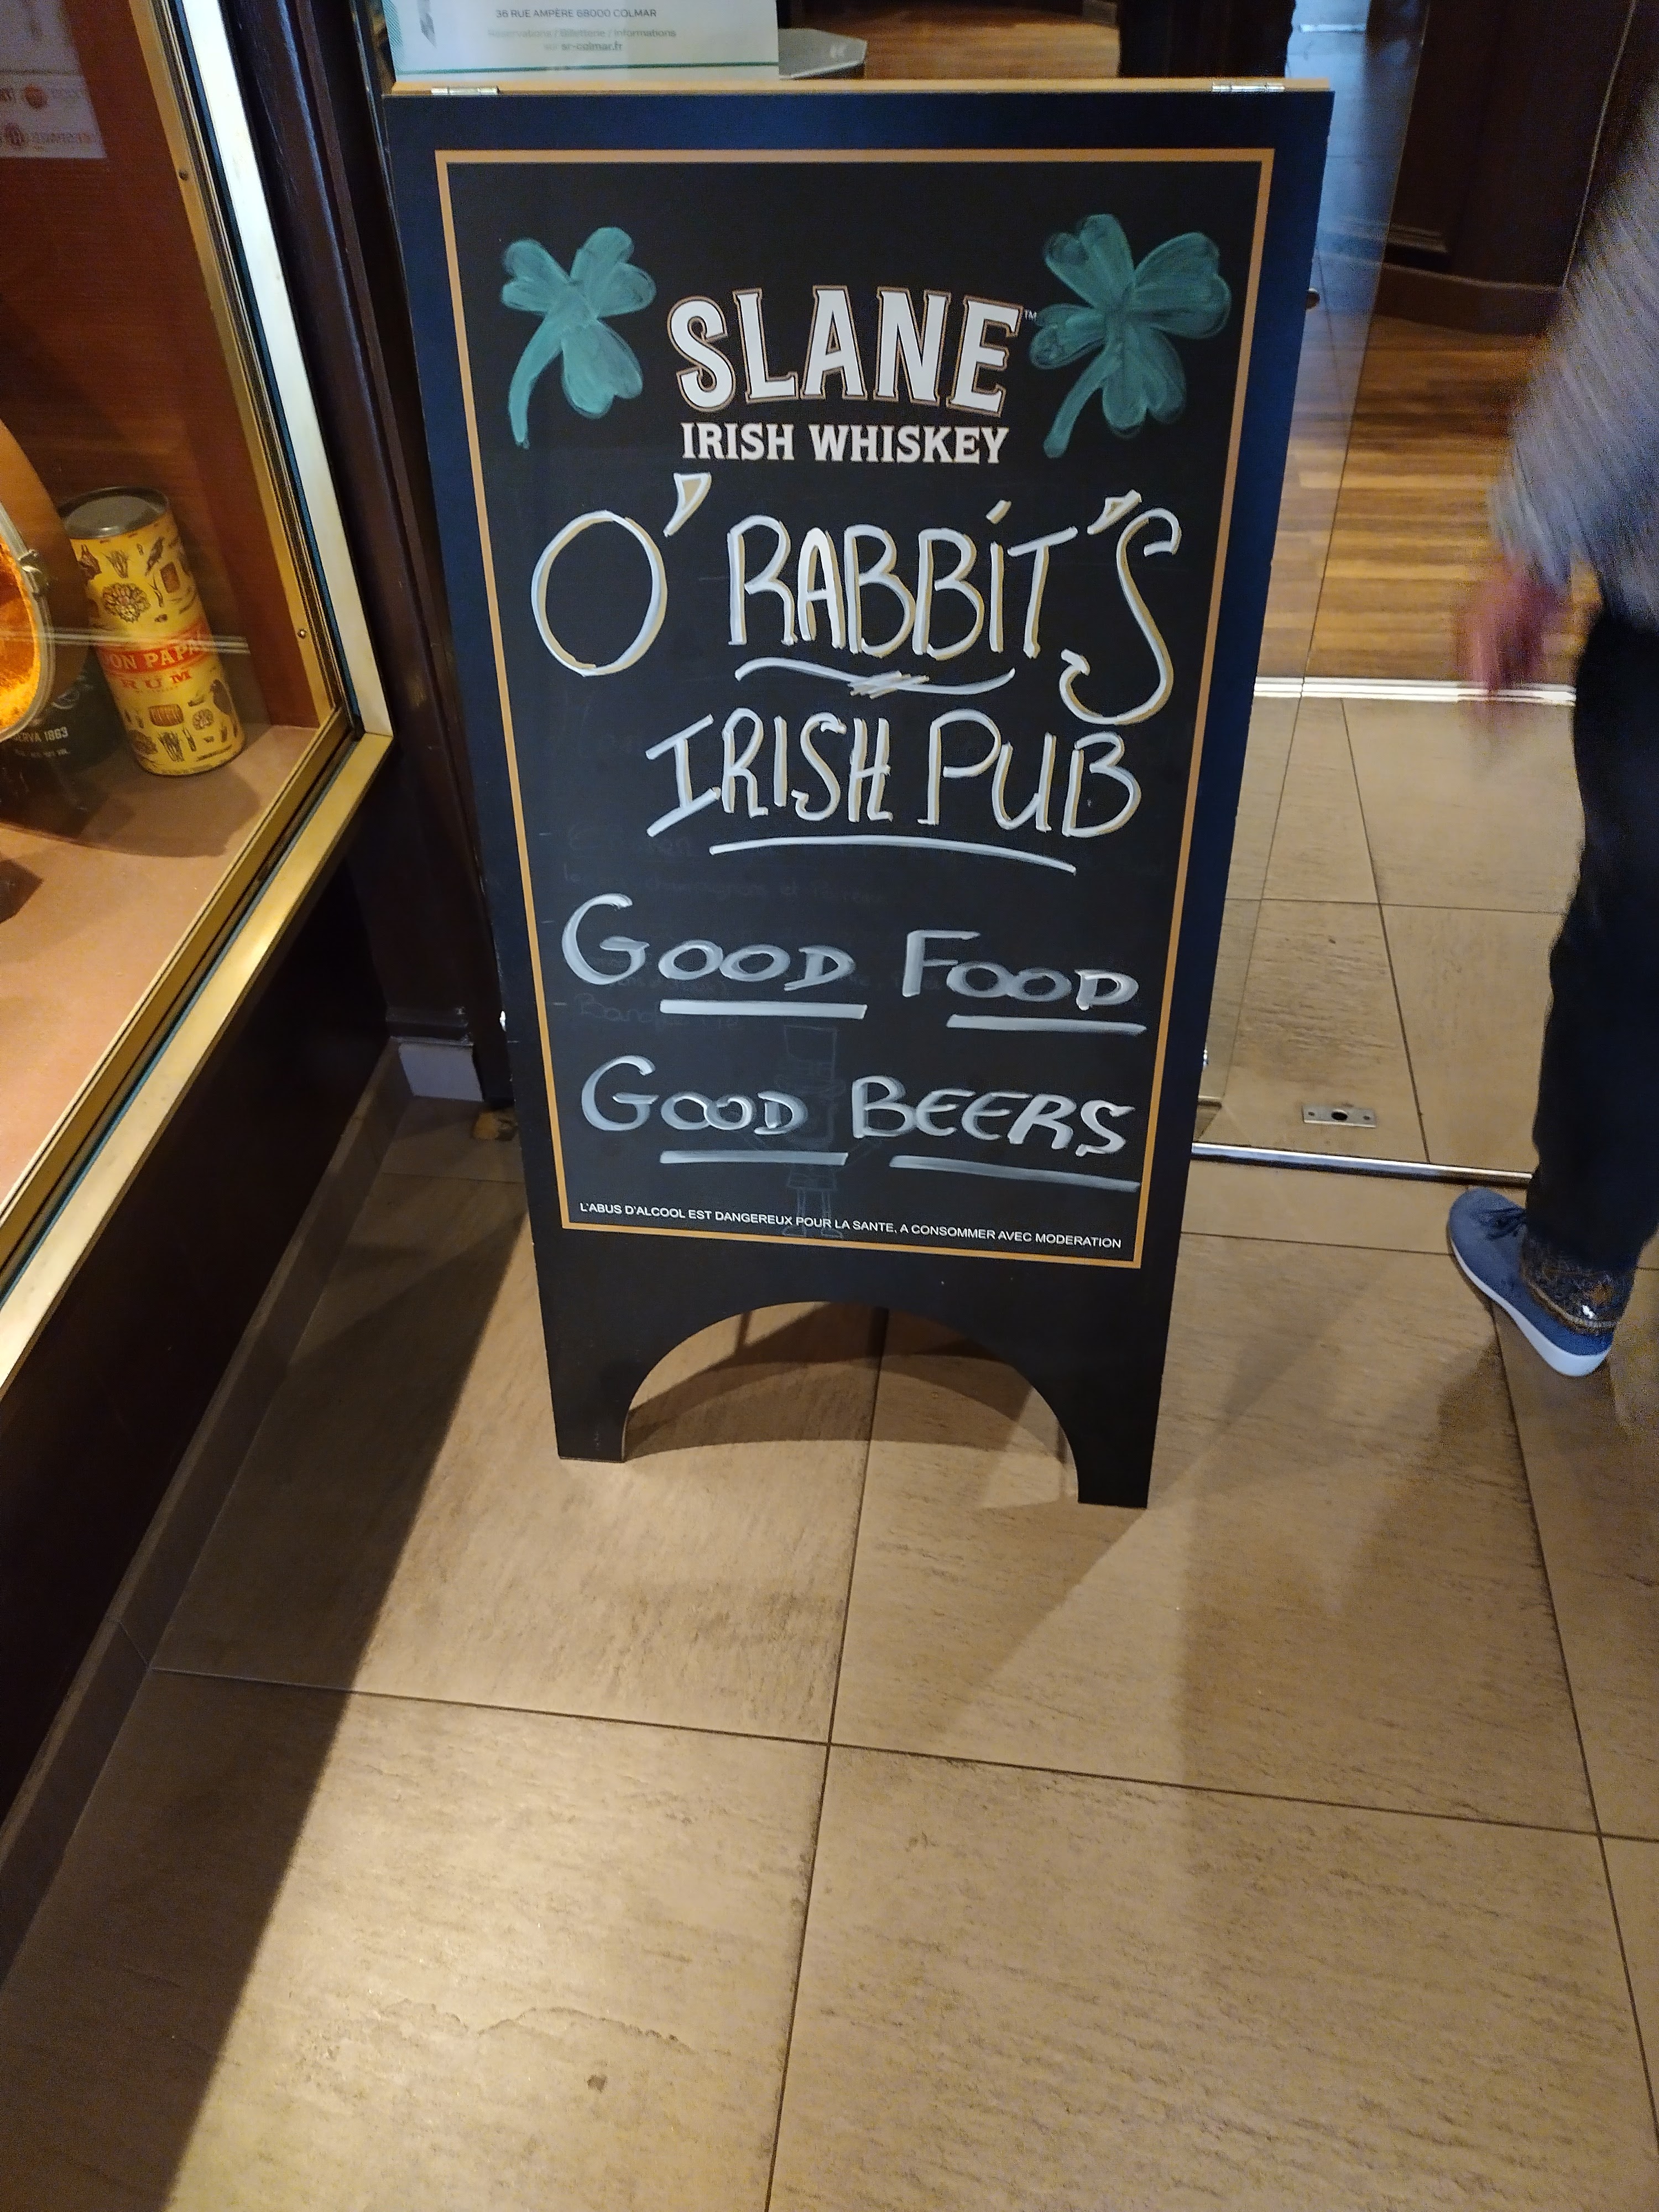 36 RUE AMPÈRE 68000 COLMAR
Réservations / Billetterie / Informations
sur sr-colmar.fr
SLANE™
IRISH WHISKEY
O'RABBIT'S
IRISH PUB
GOOD FOOD
GOOD BEERS
L'ABUS D'ALCOOL EST DANGEREUX POUR LA SANTE, A CONSOMMER AVEC MODERATION
DON PAPA
RUM
1863